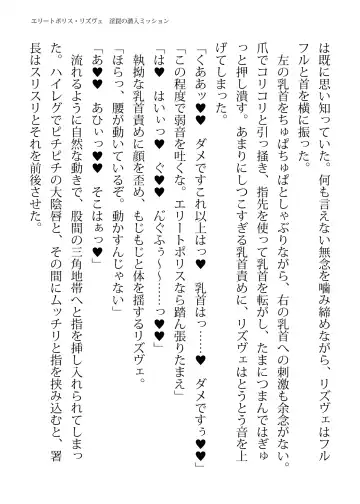 エリートポリス・リズヴェ　淫罠の潜入ミッション
は既に思い知っていた。何も言えない無念を噛み締めながら、リズヴェはフル
フルと首を横に振った。
　左の乳首をちゅぱちゅぱとしゃぶりながら、右の乳首への刺激も余念がない。
爪でコリコリと引っ掻き、指先を使って乳首を転がし、たまにつまんではぎゅ
っと押し潰す。あまりにしつこすぎる乳首責めに、リズヴェはとうとう音を上
げてしまった。
「くああッ♥　ダメですこれ以上はっ♥　乳首はっ……♥　ダメですぅ♥♥」
「この程度で弱音を吐くな。エリートポリスなら踏ん張りたまえ」
「は♥　はいぃっ♥　ぐ♥　んぐふぅ〜〜……っ♥♥」
　執拗な乳首責めに顔を歪め、もじもじと体を揺するリズヴェ。
「ほらっ、腰が動いているぞ。動かすんじゃない」
「あ♥♥　あひぃっ♥♥　そこはぁっ♥」
　流れるように自然な動きで、股間の三角地帯へと指を挿し入れられてしまっ
た。ハイレグでピチピチの大陰唇と、その間にムッチリと指を挟み込むと、署
長はスリスリとそれを前後させた。